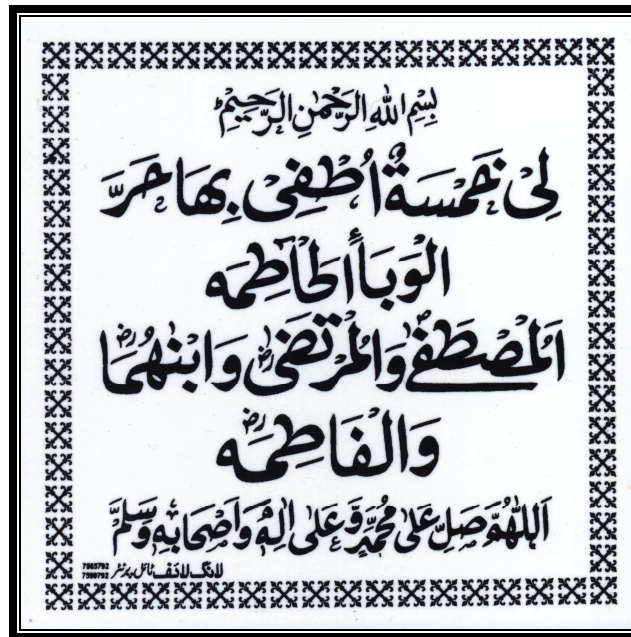 بِسْمِ اللهِ الرَّحْمٰنِ الرَّحِيْمِ
لِیْ خَمْسَةٌ اُطْفِیْ بِهَا حَرَّ
الْوَبَاأَلْحَاطِمَه
اَلْمُصْطَفٰیؐ وَالْمُرْتَضٰیؓ وَابْنٰهُمَاؓ
وَالْفَاطِمَهؓ
اَللّٰهُمَّ صَلِّ عَلٰی مُحَمَّدٍ وَّ عَلٰی اٰلِهٖ وَاَصْحَابِهٖ وَسَلِّمْ
لانگ لائف ٹائل پرنٹر 7585792
7599792